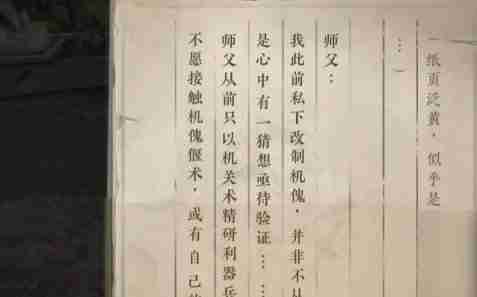 一纸页泛黄，似乎是
…
师父：
我此前私下改制机傀，并非不从
是心中有一猜想亟待验证……
师父从前只以机关术精研利器兵
不愿接触机傀偃术，或有自己